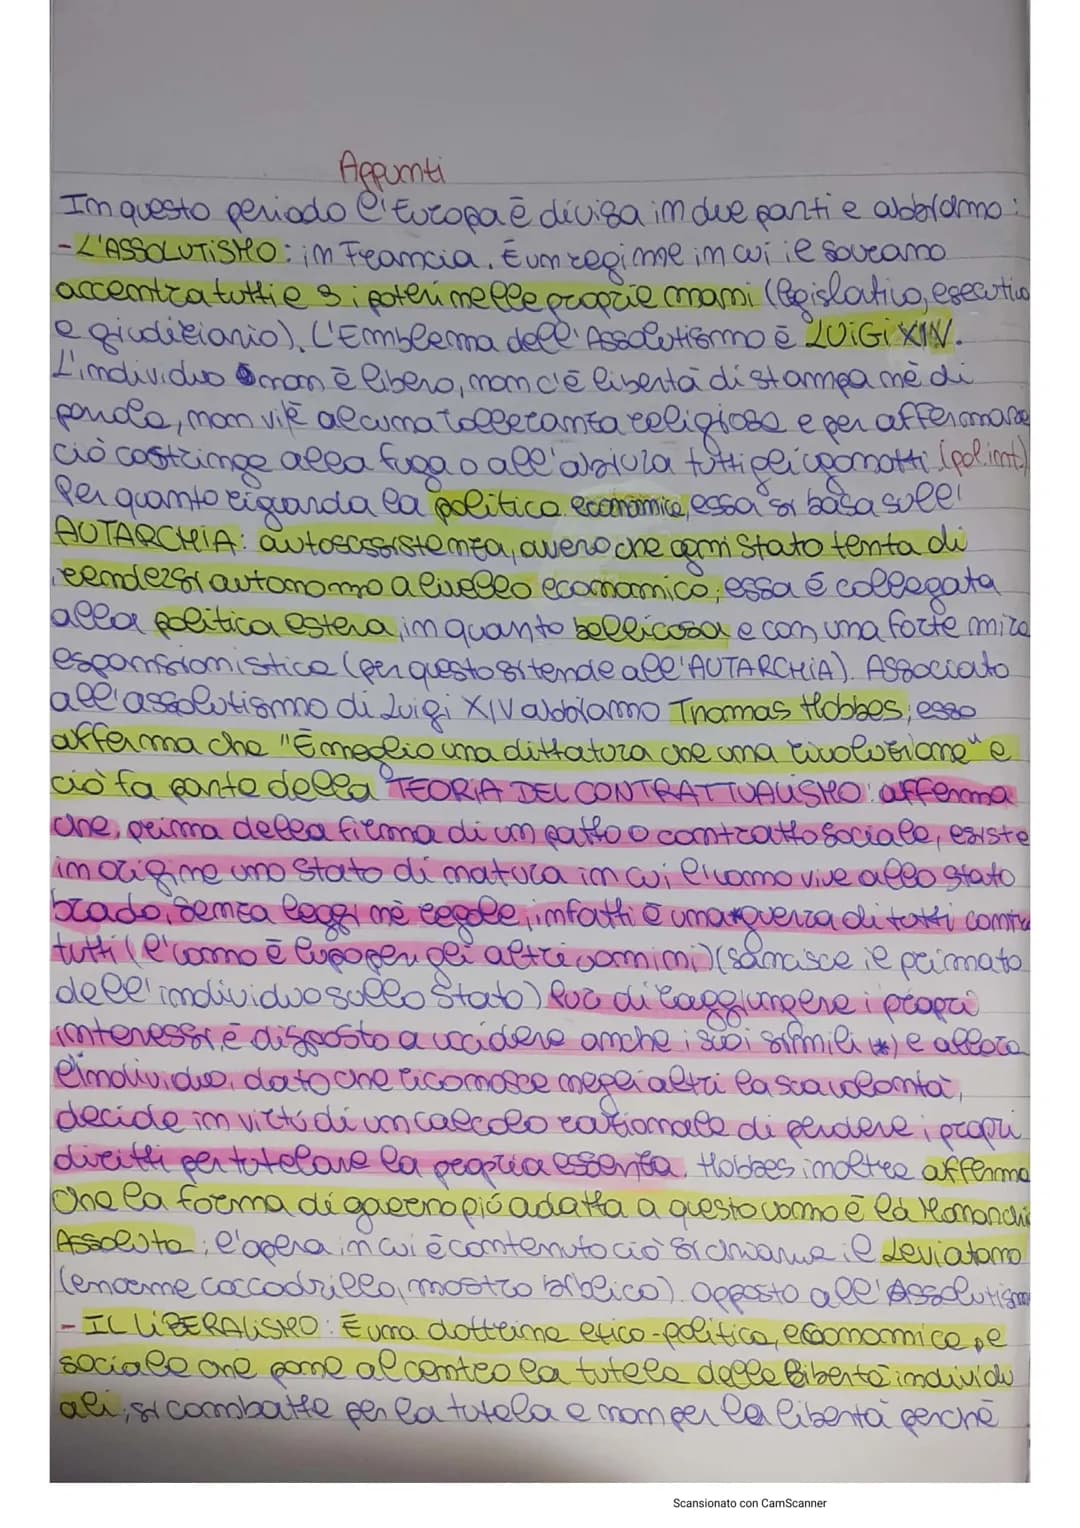 Appunti
In questo periodo l'Europa è divisa in due parti e abbiamo:
- L'ASSOLUTISMO: in Francia. È un regime in cui il sovrano
accentra tutti e 3 i poteri nelle proprie mani (legislativo, esecutivo
e giudiziario). L'Emblema dell'Assolutismo è LUIGI XIV.
L'individuo non è libero, non c'è libertà di stampa nè di
parola, non vi è alcuna tolleranza religiosa e per affermare
ciò costringe alla fuga o all'abiura tutti gli ugonotti (pol.int.)
Per quanto riguarda la politica economica, essa si basa sull'
AUTARCHIA: autosussistenza, ovvero che ogni Stato tenta di
rendersi autonomo a livello economico; essa è collegata
alla politica estera, in quanto bellicosa e con una forte mira
espansionistica (per questo si tende all'AUTARCHIA). Associato
all'assolutismo di Luigi XIV abbiamo Thomas Hobbes; esso
afferma che "È meglio una dittatura che una rivoluzione" e
ciò fa parte della TEORIA DEL CONTRATTUALISMO: afferma
che, prima della firma di un patto o contratto sociale, esiste
in origine uno Stato di natura in cui l'uomo vive allo stato
brado, senza leggi nè regole, infatti è una guerra di tutti contro
tutti (l'uomo è lupo per gli altri uomini) (sancisce il primato
dell'individuo sullo Stato) Pur di raggiungere i propri
interessi, è disposto a uccidere anche i suoi simili (*) e allora
l'individuo, dato che riconosce negli altri la sua volontà,
decide in virtù di un calcolo razionale di perdere i propri
diritti per tutelare la propria essenza. Hobbes inoltre afferma
che la forma di governo più adatta a questo uomo è la Monarchia
Assoluta; l'opera in cui è contenuto ciò si chiama il Leviatano
(enorme coccodrillo, mostro biblico). Opposto all'Assolutismo
- IL LIBERALISMO: È una dottrina etico-politica, economica e
sociale che pone al centro la tutela delle libertà individu
ali; si combatte per la tutela e non per la libertà perchè
Scansionato con CamScanner